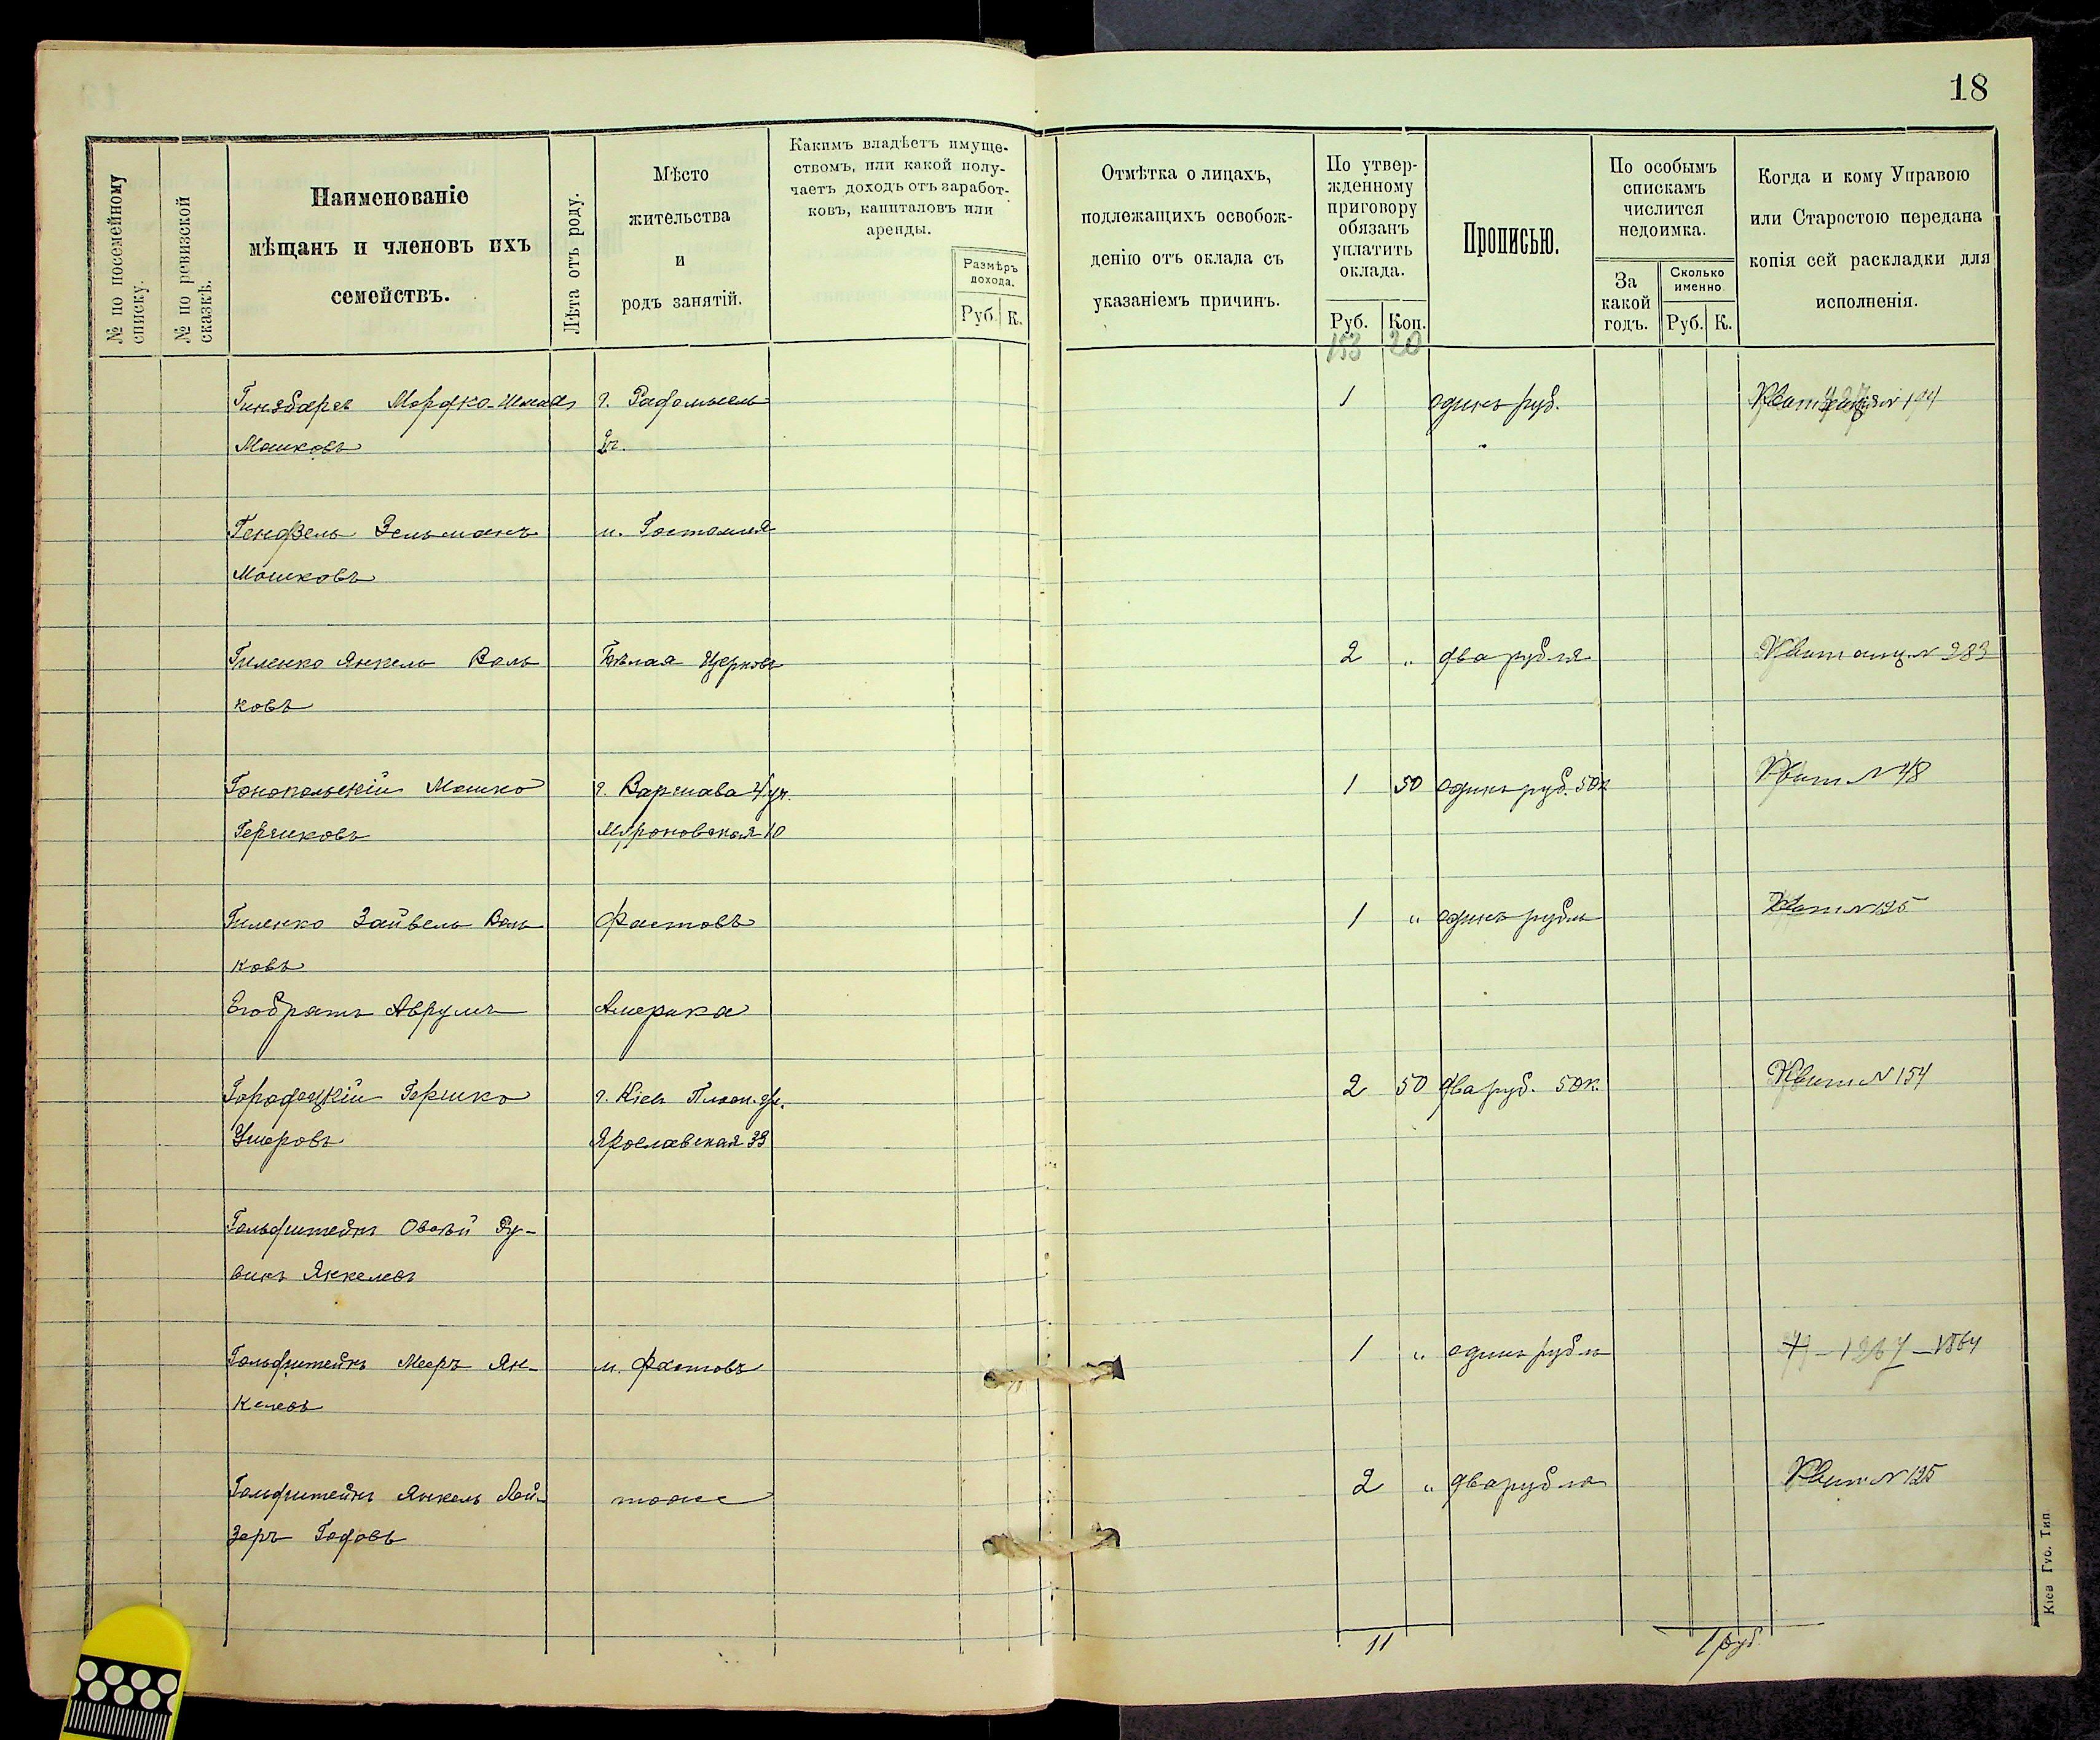 18
№ по посемейному списку.
№ по ревизской сказкѣ.
Наименованіе
мѣщанъ и членовъ ихъ
семействъ.
Лѣта отъ роду.
Мѣсто
жительства
и
родъ занятій.
Какимъ владѣетъ имуще-
ствомъ, или какой полу-
чаетъ доходъ отъ заработ-
ковъ, капиталовъ или
аренды.
Размѣръ
дохода.
Руб. К.
Отмѣтка о лицахъ,
подлежащихъ освобож-
денію отъ оклада съ
указаніемъ причинъ.
По утвер-
жденному
приговору
обязанъ
уплатить
оклада.
Руб. Коп.
Прописью.
По особымъ
спискамъ
числится
недоимка.
За
какой
годъ.
Сколько
именно.
Руб. К.
Когда и кому Управою
или Старостою передана
копія сей раскладки для
исполненія.
153 20
Гинзбаргъ Мордко г. Радомысль 1 одинъ руб.
Мошковъ
Гендзель Зельманъ м. Гостомля
Мошковъ
Гиленко Янкель Воль Бѣлая Церковь 2 „ два рубля Квитанц. N 283
ковъ
Гонопольскій Мошко г. Варшава 4 уч. 1 50 одинъ руб. 50к Квит N 48
Гершковъ Мурановская 10
Гиленко Зайвель Воль Фастовъ 1 „ одинъ рубль Квит N 125
ковъ
Его братъ Аврумъ Америка
Городецкій Гершко г. Кіев Плоск. уч. 2 50 два руб. 50к. Квит N 154
Умеровъ Ярославская 33
Гольдштейнъ Овсѣй Ру-
винъ Янкелевъ
Гольдштейнъ Мееръ Ян- м. Фастовъ 1 „ одинъ рубль
келевъ
Гольдштейнъ Янкель Лей- тоже 2 „ два рубля Квит N 125
зеръ Годовъ
11 1 руб.
Кіев Губ. Тип.